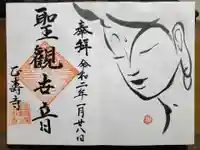 奉拝
令和二年一月廿八日
聖観世音
乙寿寺